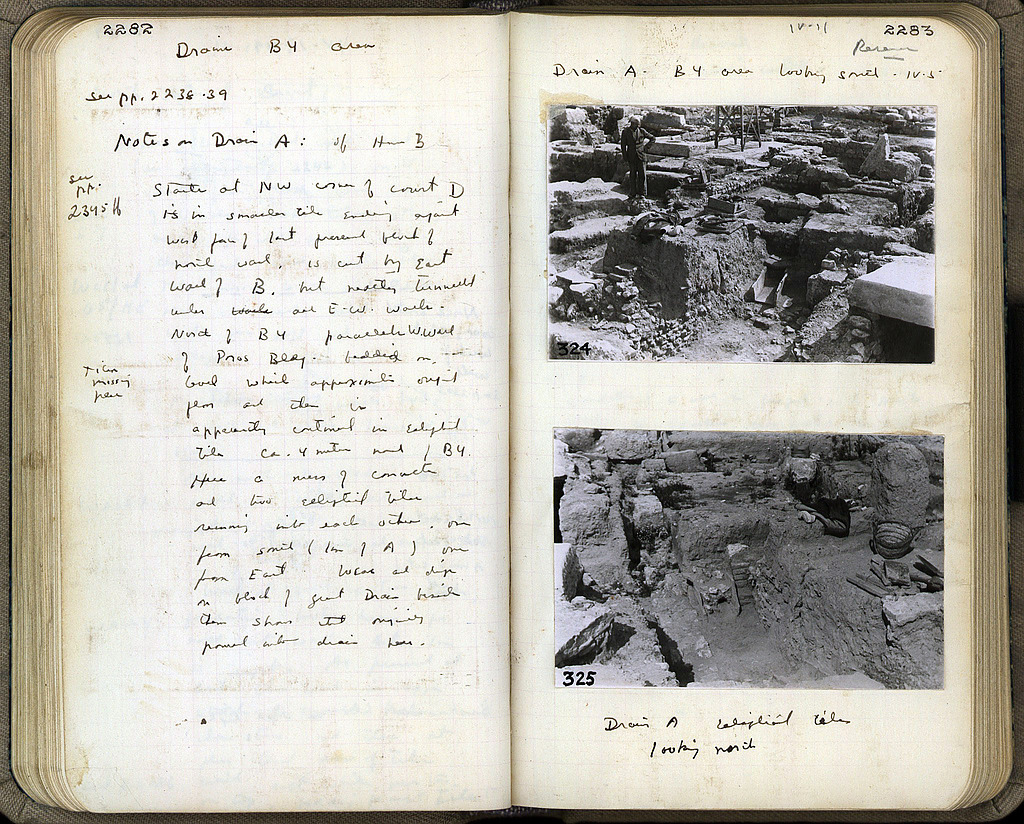 2282
Drain B4 area
see pp. 2238-39
Notes on Drain A: of House B
see
pp.
2345 ff
Starts at NW corner of court D
is in smaller tile ending against
west face of last present block of
north wall. is cut by East
wall of B. but neatly tunnels
under walls all E-W. walls.
North of B4 parallels W. wall
of Poros Bldg. bedded on
tiles
missing
here
level which
pens and then is
apparently continued in elliptical
tile ca. 4 meters north of B4.
Here a mess of
and two elliptical tiles
running into each other, one
from south (line of A) one
from East. Wear and dip
on block of great Drain beside
them shows originally
poured into drain here.
IV-11
2283
Drain A. B4 area looking south. IV-5
324
325
Drain A elliptical tiles
looking north